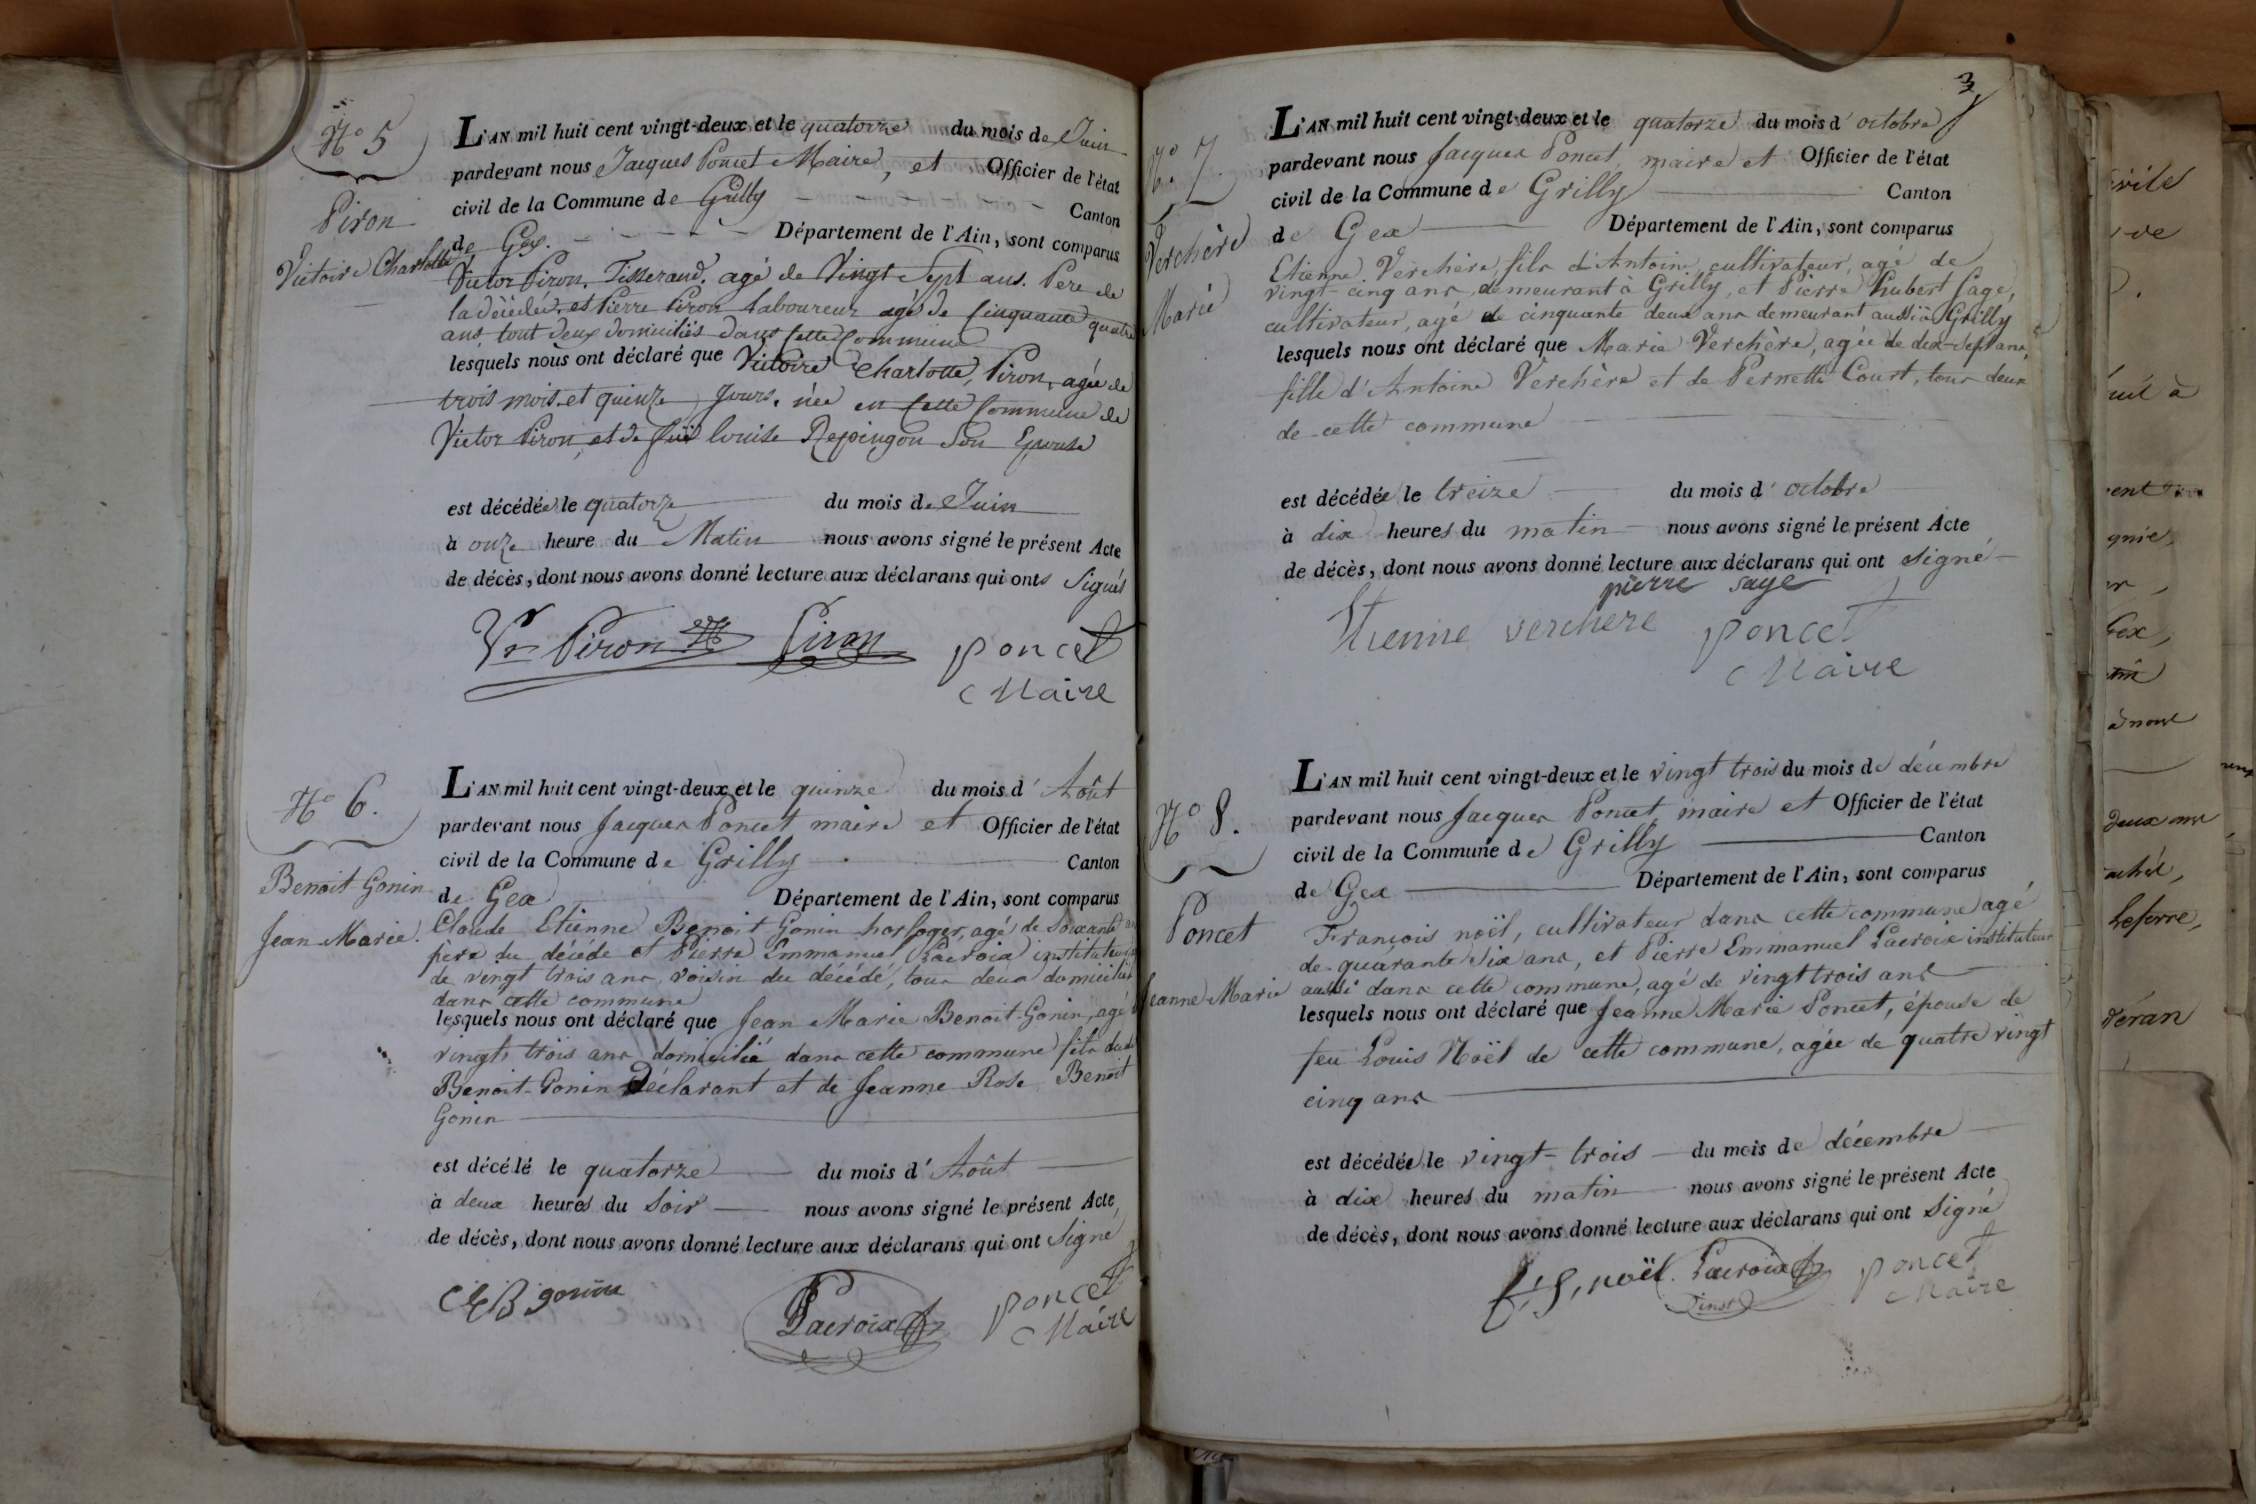 N° 5
Piron
Victoire Charlotte
L'AN mil huit cent vingt-deux et le quatorze du mois de Juin
pardevant nous Jacques Poncet Maire, et Officier de l'état
civil de la Commune de Grilly Canton
de Gex. Département de l'Ain, sont comparus
Victor Piron, Tisserand, agé de Vingt Sept ans. Pere de
la décédée, et Pierre Piron Laboureur agé de Cinquante quatre
ans, tout deux domiciliés dans Cette Commune
lesquels nous ont déclaré que Victoire Charlotte, Piron, agée de
trois mois et quinze Jours, née en Cette Commune de
Victor Piron, et de Louise Rejoingon Son Epouse
est décédée le quatorze du mois de Juin
à onze heure du Matin nous avons signé le présent Acte
de décès, dont nous avons donné lecture aux déclarans qui onts Signés
Vr Piron Piron Poncet
Maire
N° 6.
Benoit Gonin
Jean Marie.
L'AN mil huit cent vingt-deux et le quinze du mois d'Août
pardevant nous Jacques Poncet maire et Officier de l'état
civil de la Commune de Grilly Canton
de Gex Département de l'Ain, sont comparus
Claude Etienne Benoit Gonin horloger, agé de Soixante
père du décédé et Pierre Emmanuel Lacroix instituteur
de vingt trois ans, voisin du décédé, tous deux domiciliés
dans cette commune
lesquels nous ont déclaré que Jean Marie Benoit-Gonin, agé
vingt trois ans domicilié dans cette commune fils du
Benoit-Gonin Déclarant et de Jeanne Rose Benoit
Gonin
est décédé le quatorze du mois d'Août
à deux heures du Soir nous avons signé le présent Acte,
de décès, dont nous avons donné lecture aux déclarans qui ont Signé
C E B gonin Lacroix Poncet
Maire
3
N° 7.
Verchère
Marie
L'AN mil huit cent vingt-deux et le quatorze du mois d'octobre
pardevant nous Jacques Poncet, maire et Officier de l'état
civil de la Commune de Grilly Canton
de Gex Département de l'Ain, sont comparus
Etienne Verchère, fils d'Antoine, cultivateur, agé de
vingt-cinq ans, demeurant à Grilly, et Pierre Hubert Sage,
cultivateur, agé de cinquante deux ans demeurant aussi à Grilly
lesquels nous ont déclaré que Marie Verchère, agée de dix-sept ans,
fille d'Antoine Verchère et de Pernette Court, tous deux
de cette commune
est décédée le treize du mois d'octobre
à dix heures du matin nous avons signé le présent Acte
de décès, dont nous avons donné lecture aux déclarans qui ont signé
pierre sage
Etienne verchere Poncet
Maire
N° 8.
Poncet
Jeanne Marie
L'AN mil huit cent vingt-deux et le vingt trois du mois de décembre
pardevant nous Jacques Poncet, maire et Officier de l'état
civil de la Commune de Grilly Canton
de Gex Département de l'Ain, sont comparus
François noël, cultivateur dans cette commune agé
de quarante six ans, et Pierre Emmanuel Lacroix instituteur
aussi dans cette commune, agé de vingt trois ans
lesquels nous ont déclaré que Jeanne Marie Poncet, épouse de
feu Louis Noël de cette commune, agée de quatre vingt
cinq ans
est décédée le vingt-trois du mois de décembre
à dix heures du matin nous avons signé le présent Acte
de décès, dont nous avons donné lecture aux déclarans qui ont Signé
noël. Lacroix Poncet
inst Maire